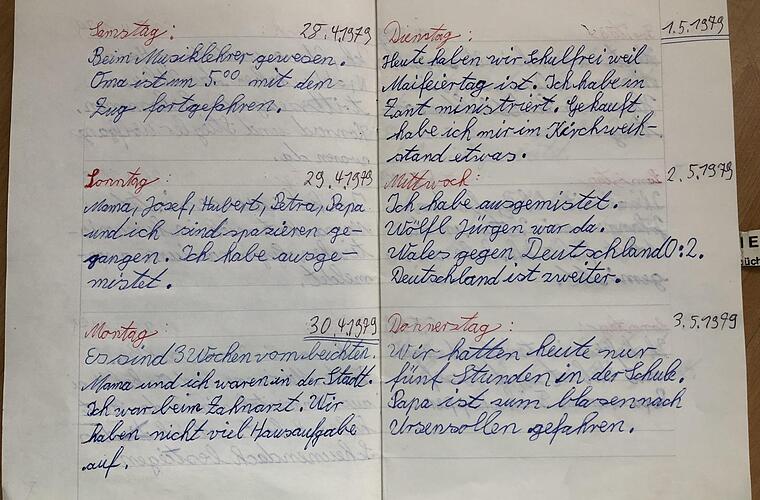 Samstag: 28.4.1979
Beim Musiklehrer gewesen.
Oma ist um 5.00 mit dem
Zug fortgefahren.
Sonntag: 29.4.1979
Mama, Josef, Hubert, Petra, Papa
und ich sind spazieren ge-
gangen. Ich habe ausge-
mistet.
Montag: 30.4.1979
Es sind 3 Wochen vom beichten.
Mama und ich waren in der Stadt.
Ich war beim Zahnarzt. Wir
haben nicht viel Hausaufgabe
auf.
Dienstag: 1.5.1979
Heute haben wir Schulfrei weil
Maifeiertag ist. Ich habe in
Zant ministriert. Gekauft
habe ich mir im Kirchweih-
stand etwas.
Mittwoch: 2.5.1979
Ich habe ausgemistet.
Wölfl Jürgen war da.
Wales gegen Deutschland 0:2.
Deutschland ist zweiter.
Donnerstag: 3.5.1979
Wir hatten heute nur
fünf Stunden in der Schule.
Papa ist zum blasen nach
Ursensollen gefahren.